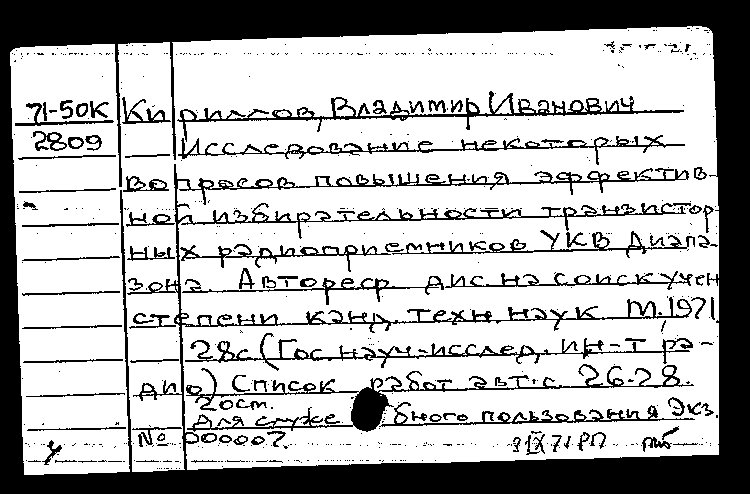 71-50К Кириллов, Владимир Иванович
2809 Исследование некоторых
вопросов повышения эффектив-
ной избирательности транзистор-
ных радиоприемников УКВ диапа-
зона. Автореф. дис. на соиск. учен.
степени канд. техн. наук. М. 1971.
28с (Гос. науч.-исслед. ин-т ра-
дио) Список работ авт. с. 26-28.
20ст.
Для служебного пользования Экз.
№ 000007.
9 IX 71 РП